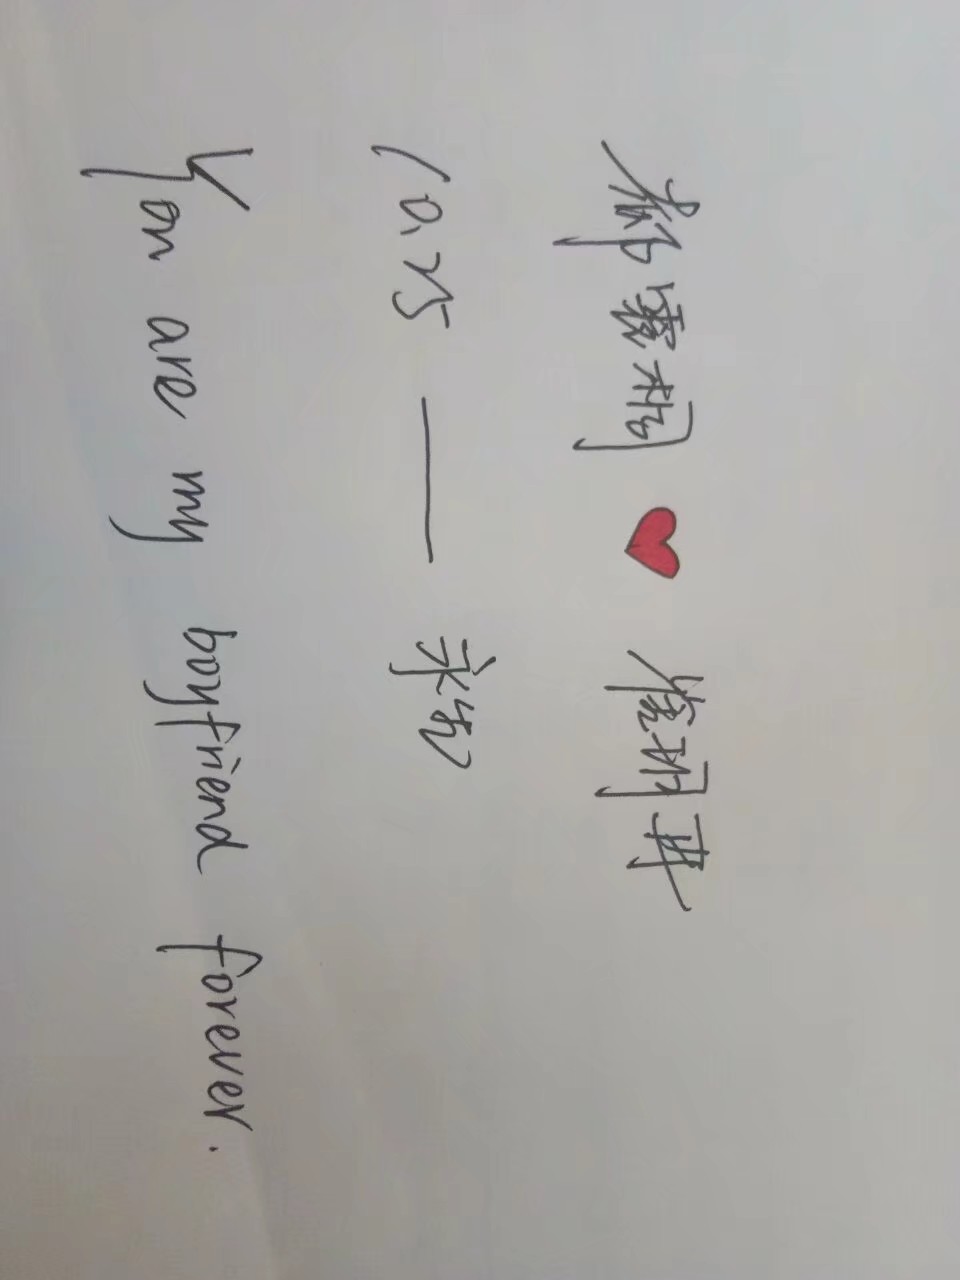 郝露桐 ❤ 詹翔冉
10.25 —— 永久
You are my boyfriend forever.